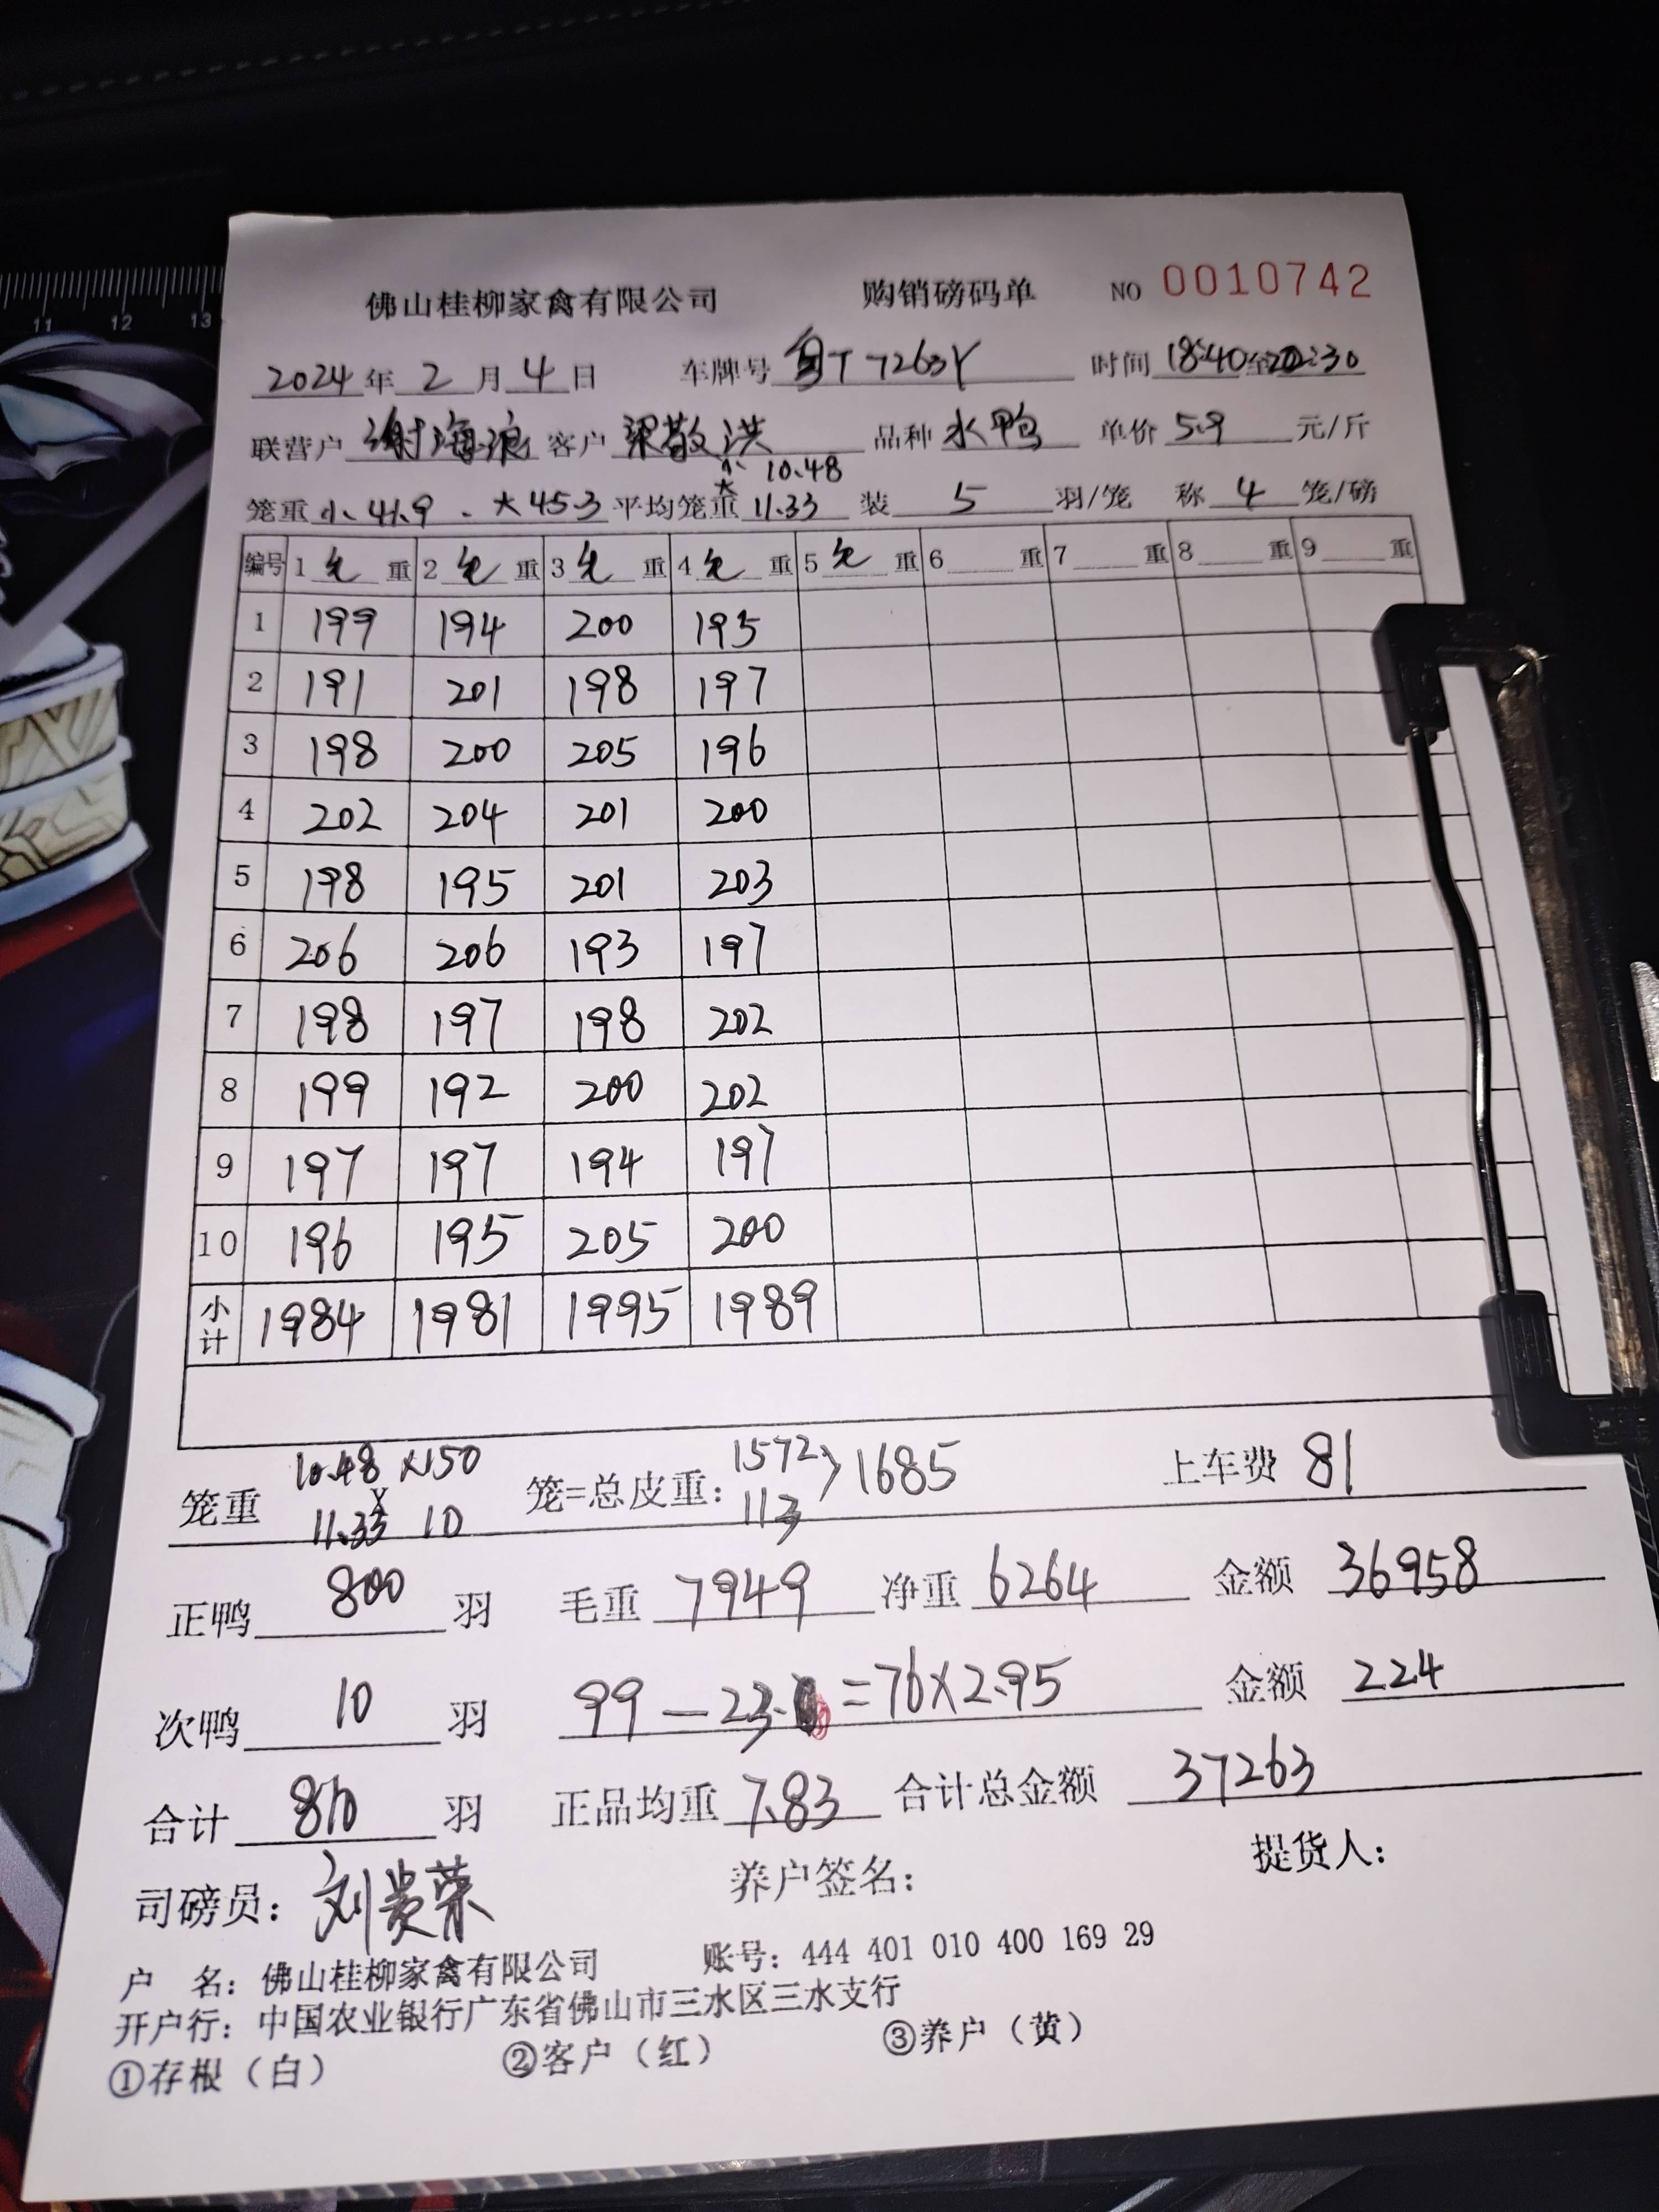 11 12 13
佛山桂柳家禽有限公司 购销磅码单 NO 0010742
2024年2月4日 车牌号 粤T7263Y 时间 18:40至22:30
联营户 谢海浪 客户 梁敬洪 品种 水鸭 单价 5.9 元/斤
小 10.48
笼重 小 41.9 . 大 45.3 平均笼重 大 11.33 装 5 羽/笼 称 4 笼/磅
编号 1 毛 重 2 毛 重 3 毛 重 4 毛 重 5 毛 重 6 重 7 重 8 重 9 重
1 199 194 200 195
2 191 201 198 197
3 198 200 205 196
4 202 204 201 200
5 198 195 201 203
6 206 206 193 197
7 198 197 198 202
8 199 192 200 202
9 197 197 194 197
10 196 195 205 200
小计 1984 1981 1995 1989
笼重 10.48×150 笼=总皮重: 1572 > 1685 上车费 81
11.33 × 10 113
正鸭 800 羽 毛重 7949 净重 6264 金额 36958
次鸭 10 羽 99-23. =76×2.95 金额 224
合计 810 羽 正品均重 7.83 合计总金额 37263
司磅员: 刘贵荣 养户签名: 提货人:
户 名: 佛山桂柳家禽有限公司 账号: 444 401 010 400 169 29
开户行: 中国农业银行广东省佛山市三水区三水支行
①存根(白) ②客户(红) ③养户(黄)